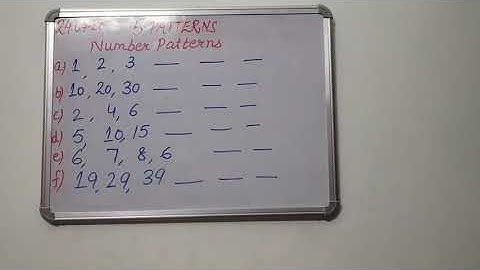 PATTERNS
Number Patterns
a) 1, 2, 3 — — —
b) 10, 20, 30 — — —
c) 2, 4, 6 — — —
d) 5, 10, 15 — — —
e) 6, 7, 8, 6 — —
f) 19, 29, 39 — — —